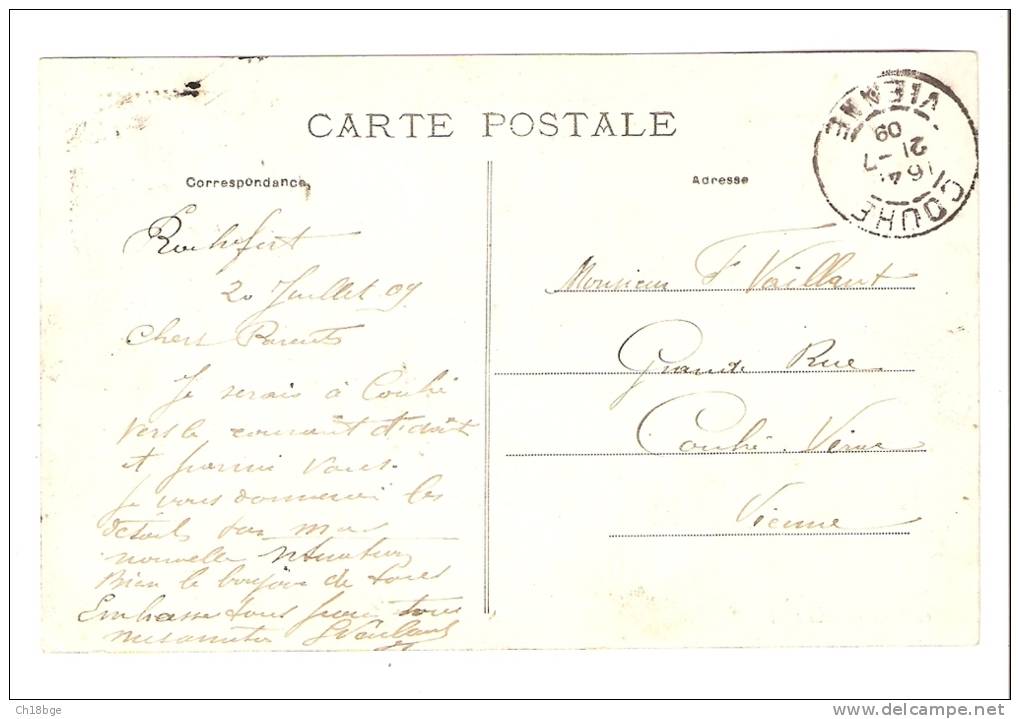 CARTE POSTALE
Correspondance
Rochefort
20 Juillet 09
Chers Parents
Je serais à Couhé
vers le courant d'août
et parmi vous.
Je vous donnerai les
détails sur ma
nouvelle
Bien le bonjour de tous
Embrasse tous pour tous
mes amitiés Vaillant
Adresse
Monsieur F Vaillant
Grande Rue
Couhé-Vérac
Vienne
COUHE
VIENNE
21 -7
09
Ch18bge
delcampe.net